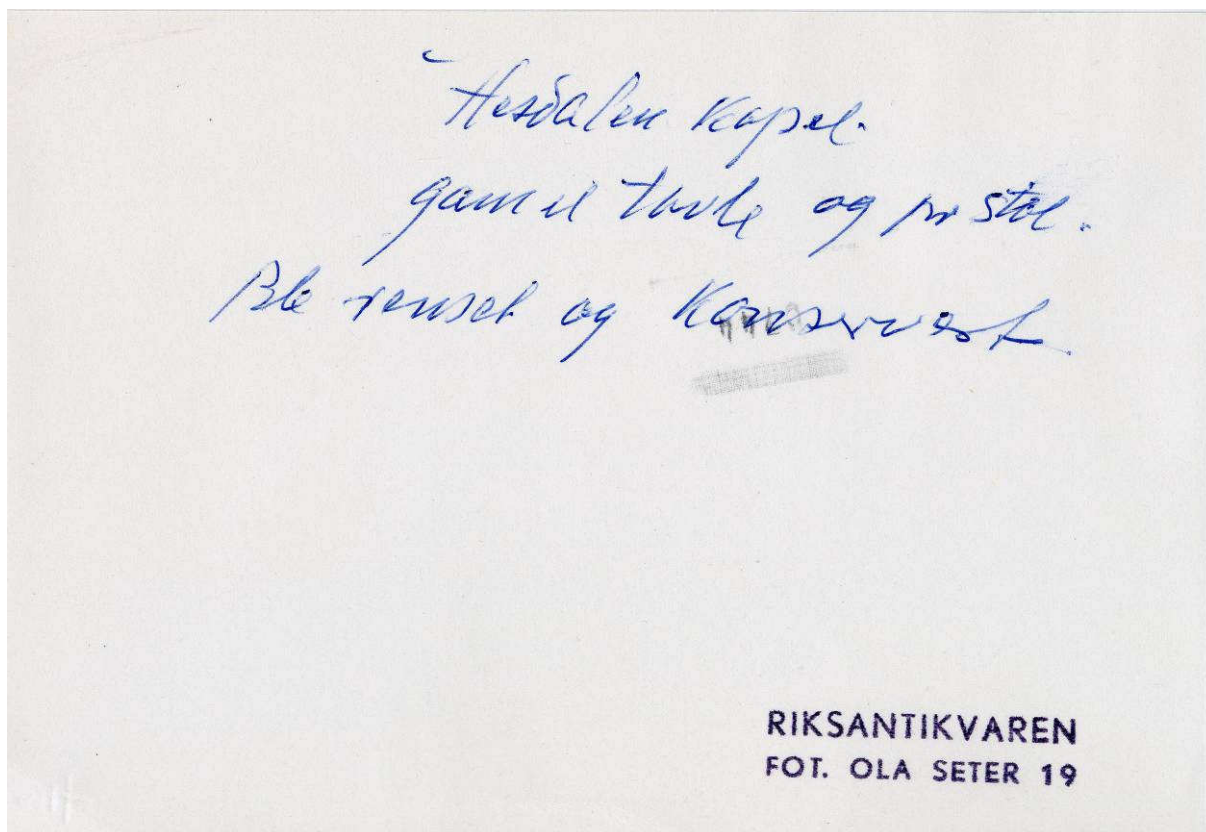 Hesdalen Kapel.
gamel tavle og pr stol.
Ble renset og Konservert
RIKSANTIKVAREN
FOT. OLA SETER 19